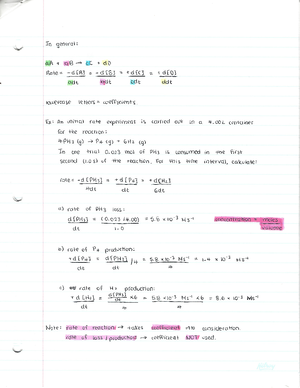 In general:
aA + bB → cC + dD
Rate = -d[A] = -d[B] = +d[C] = +d[D]
adt bdt cdt ddt
lowercase letters = coefficients
Ex: An initial rate experiment is carried out in a 4.00L container
for the reaction:
4PH3 (g) → P4 (g) + 6H2 (g)
In one trial 0.023 mol of PH3 is consumed in the first
second (1.0s) of the reaction. For this time interval, calculate:
rate = -d[PH3] = +d[P4] = +d[H2]
4dt dt 6dt
a) rate of PH3 loss:
d[PH3] = (0.023/4.00) = 5.8 × 10⁻³ Ms⁻¹
dt 1.0
concentration = moles
volume
b) rate of P4 production:
+d[P4] = d[PH3] /4 = 5.8 × 10⁻³ Ms⁻¹ = 1.4 × 10⁻³ Ms⁻¹
dt dt 4
c) rate of H2 production:
+d[H2] = d[PH3] × 6 = 5.8 × 10⁻³ Ms⁻¹ × 6 = 8.6 × 10⁻³ Ms⁻¹
dt 4 4
Note: rate of reaction → takes coefficient into consideration
rate of loss/production → coefficient NOT used.